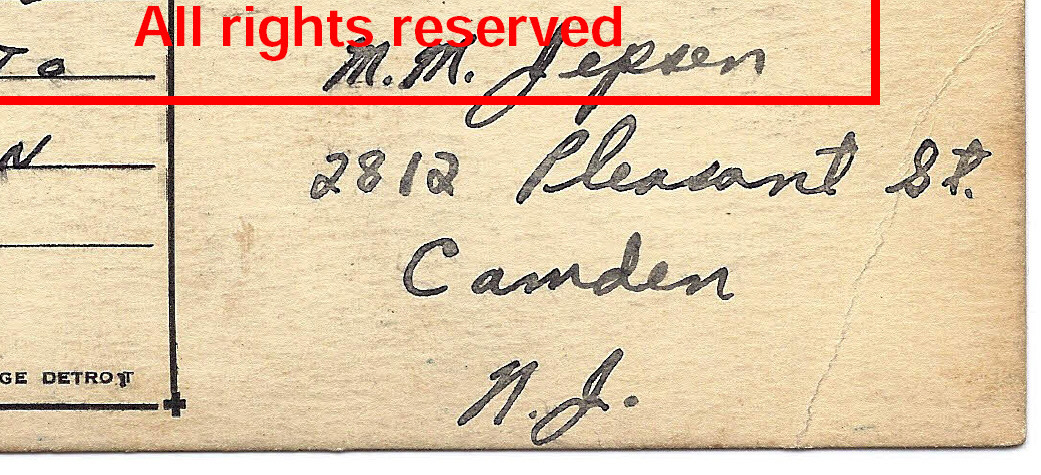 All rights reserved
To
M.M. Jepsen
N
2812 Pleasant St.
Camden
GE DETROIT
N.J.